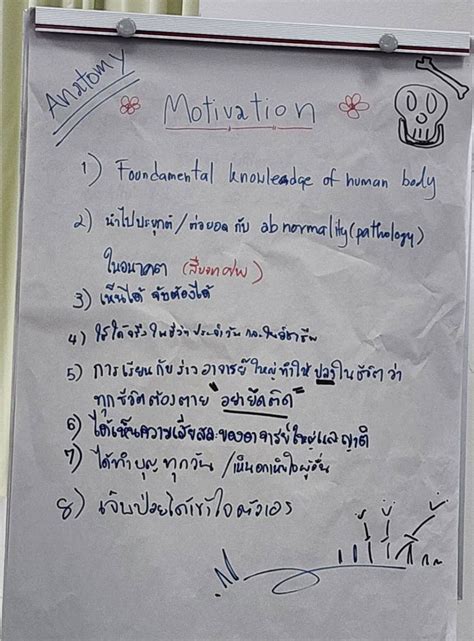 Anatomy
Motivation
1) Foundamental knowleadge of human body
2) นำไปประยุกต์/ต่อยอด กับ abnormality (pathology)
ในอนาคต
3) เห็นได้ จับต้องได้
4) ใช้ได้จริง ในชีวิตประจำวัน และในวิชาชีพ
5) การเรียนกับร่างอาจารย์ใหญ่ทำให้ปลงในชีวิตว่า
ทุกชีวิตต้องตาย "อย่ายึดติด"
6) ได้เห็นความเสียสละของอาจารย์ใหญ่และญาติ
7) ได้ทำบุญทุกวัน /เห็นอกเห็นใจผู้อื่น
8) เจ็บป่วยได้เข้าใจตัวเอง